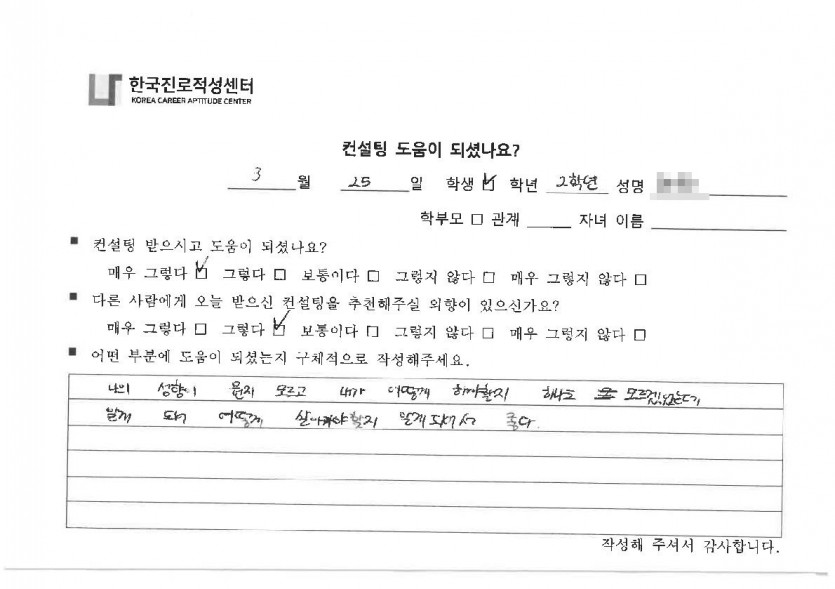 한국진로적성센터
KOREA CAREER APTITUDE CENTER
컨설팅 도움이 되셨나요?
3 월 25 일 학생 ☑ 학년 2학년 성명
학부모 □ 관계 자녀 이름
■ 컨설팅 받으시고 도움이 되셨나요?
매우 그렇다 ☑ 그렇다 □ 보통이다 □ 그렇지 않다 □ 매우 그렇지 않다 □
■ 다른 사람에게 오늘 받으신 컨설팅을 추천해주실 의향이 있으신가요?
매우 그렇다 □ 그렇다 ☑ 보통이다 □ 그렇지 않다 □ 매우 그렇지 않다 □
■ 어떤 부분에 도움이 되셨는지 구체적으로 작성해주세요.
나의 성향이 뭔지 모르고 내가 어떻게 해야할지 하나도 모르겠었는데
알게 되어 어떻게 살아가야할지 알게 되어서 좋다.
작성해 주셔서 감사합니다.